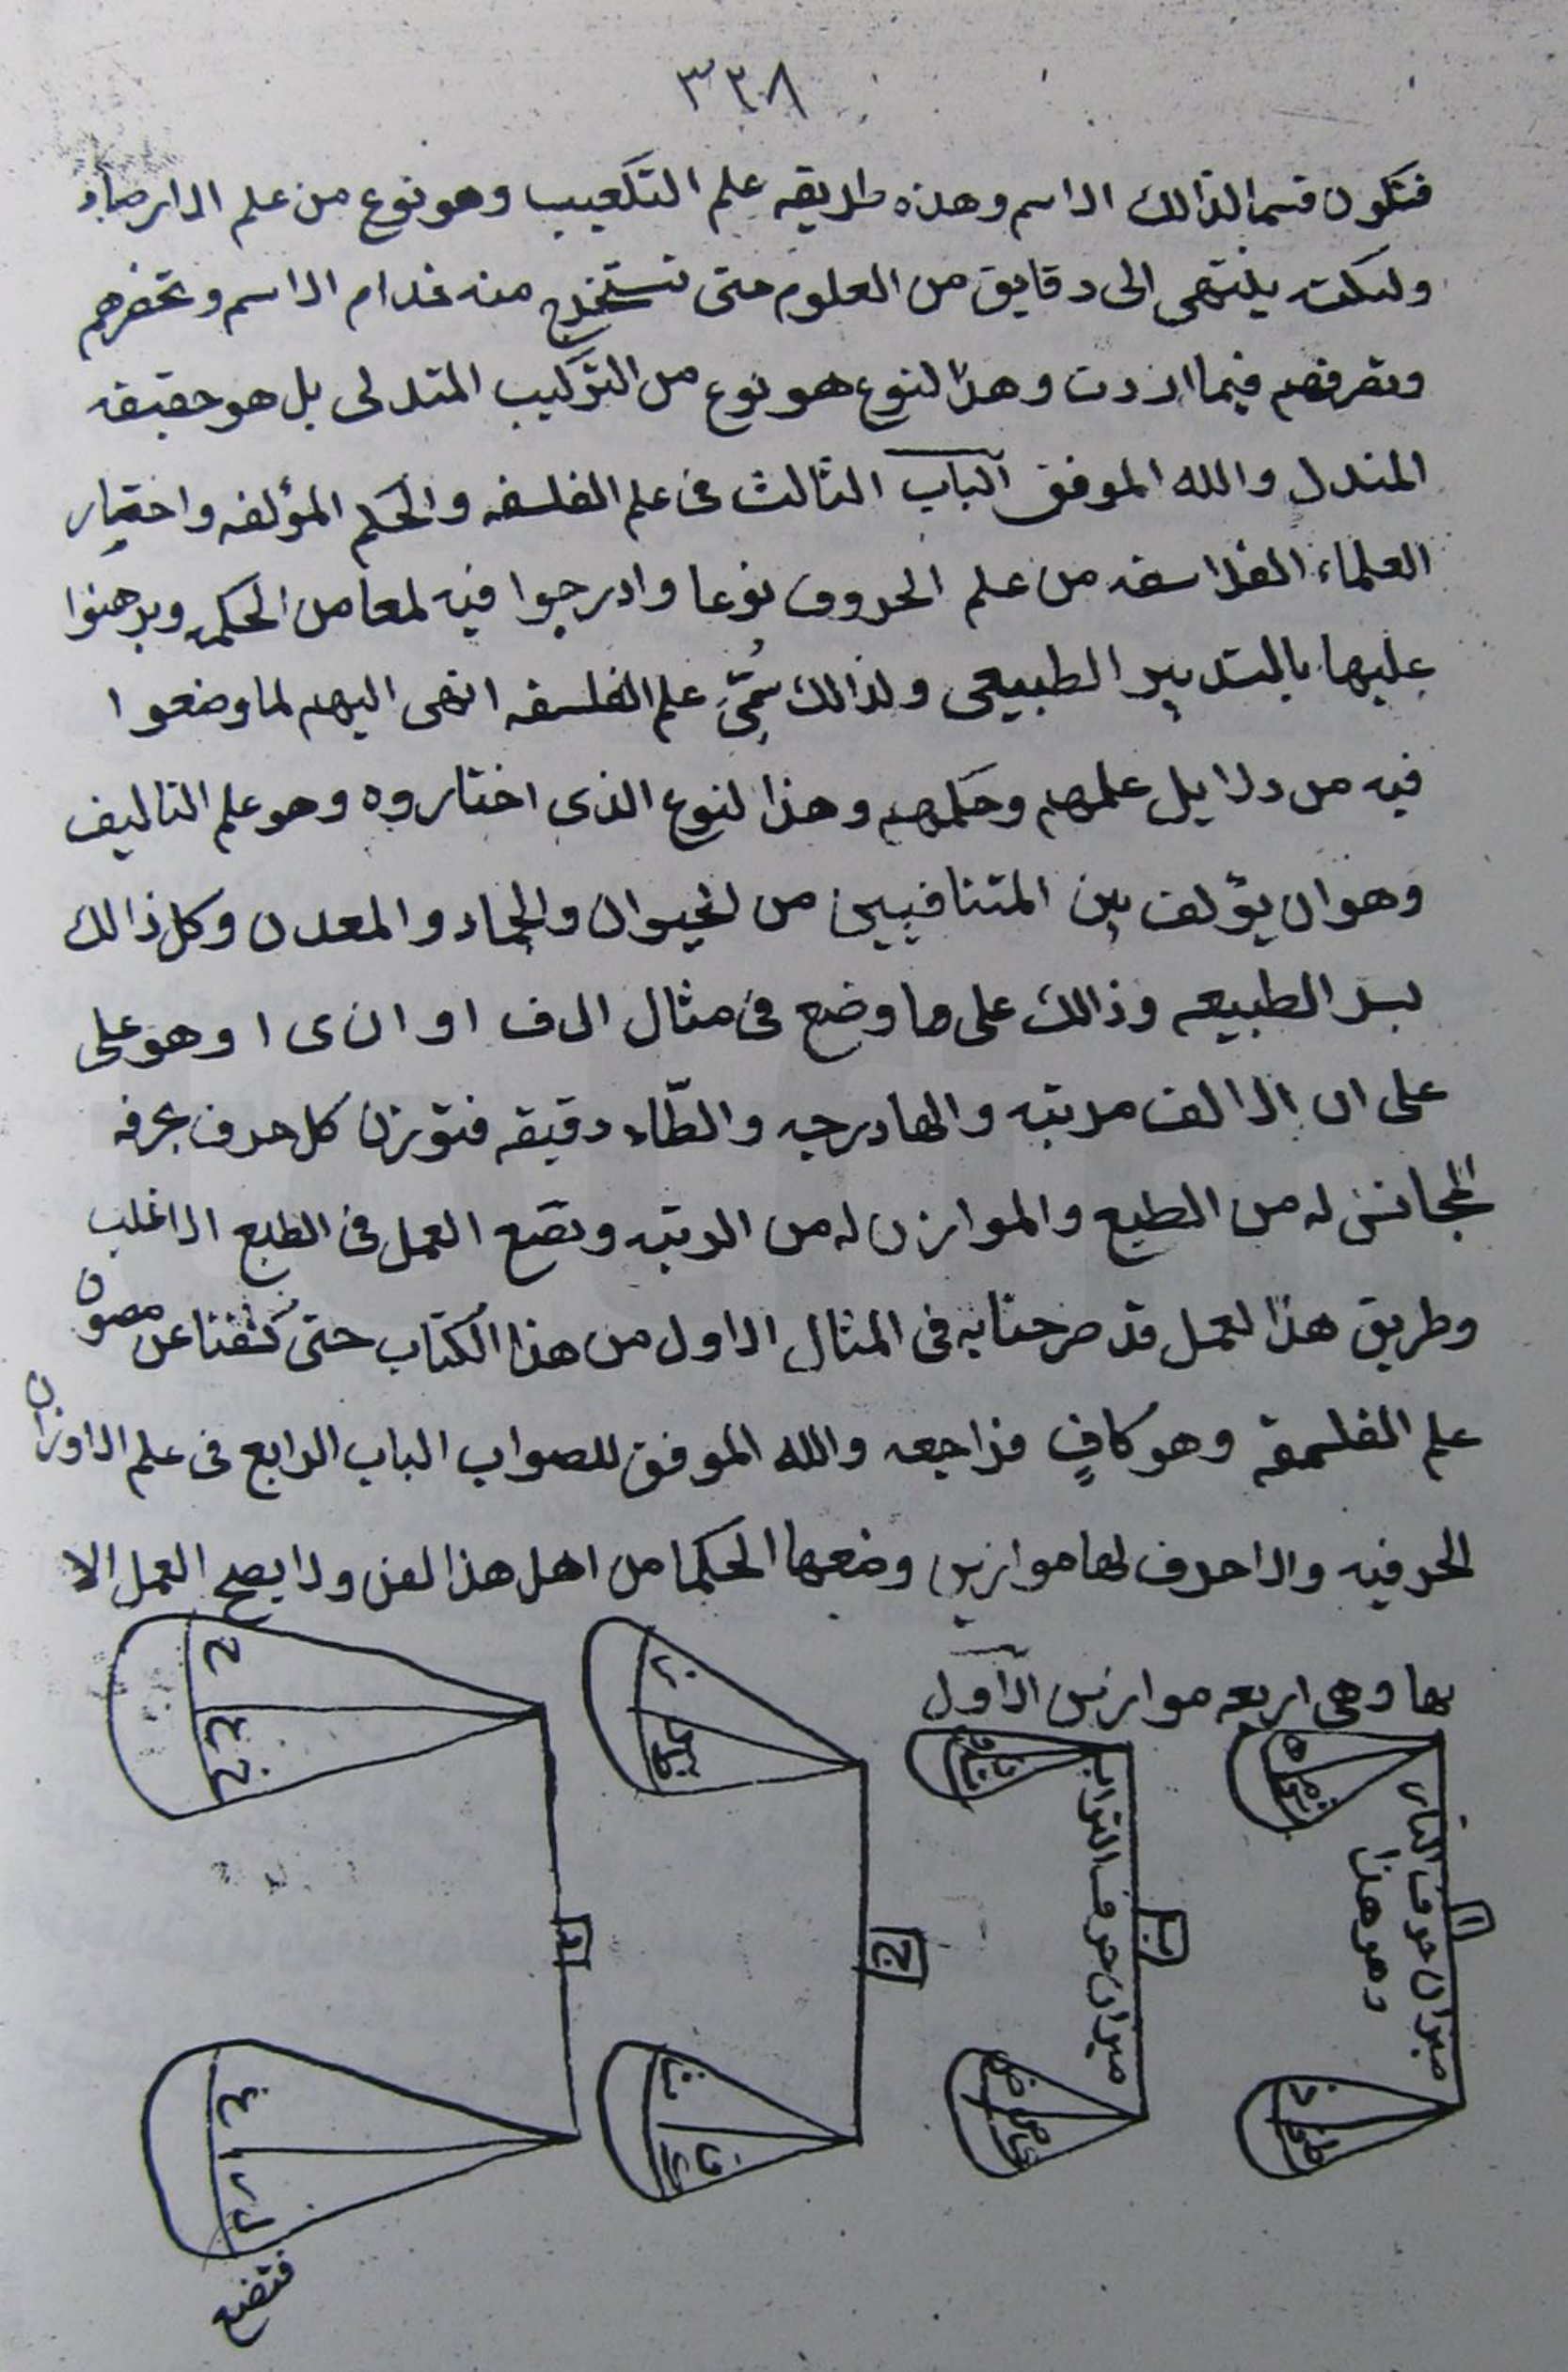 ٣٣٨
فتكون قسما لذالك الاسم وهذه طريقه علم التكعيب وهو نوع من علم الارصاد
ولكنه ينتهى الى دقايق من العلوم حتى تستخرج منه خدام الاسم وتحضرهم
وتصرفهم فيما اردت وهذا لنوع هو نوع من التركيب المتدلى بل هو حقيقه
المندل والله الموفق الباب الثالث فى علم الفلسفه والحكم المؤلفه واختيار
العلماء الفلاسفه من علم الحروف نوعا وادرجوا فيه لمعا من الحكمه وبرهنوا
عليها بالتدبير الطبيعى ولذالك سُمّىِ علم الفلسفه انتهى اليهم لما وضعوا
فيه من دلايل علمهم وحكمهم وهذا لنوع الذى اختاروه وهو علم التاليف
وهو ان يؤلف بين المتنافيين من الحيوان والجماد والمعدن وكل ذالك
بسر الطبيعه وذالك على ما وضع فى مثال ال ف ا و ا ن ى ا وهو على
على ان الالف مرتبه والها درجه والطّاء دقيقه فتوزن كل حرف بحرفه
المجانس له من الطبع والموازن له من الرتبه وتضع العمل فى الطبع الاغلب
وطريق هذا لعمل قد صرحنا به فى المثال الاول من هذا الكتاب حتى كشفنا عن مصون
علم الفلسفة وهو كافٍ فراجعه والله الموفق للصواب الباب الرابع فى علم الاوزان
الحرفيه والاحرف لها موازين وضعها الحكما من اهل هذا لفن ولا يصح العمل الا
بها وهى اربعه موازين الاول
ميزان حرف النار
وهو هذا
ا
ميزان حرف التراب
ب
ج
د
فتضع